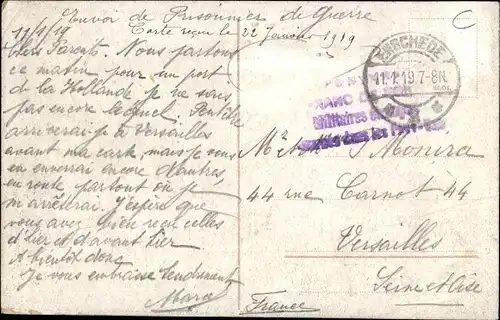 Envoi de Prisonnier de Guerre
11/1/19 Carte reçue le 22 Janvier 1919
Chers Parents. Nous partons
ce matin pour un port
de la Hollande je ne sais
pas encore lequel. Peut être
arriverai-je à Versailles
avant ma carte, mais je vous
en enverrai encore d'autres,
en route, partout où je
m'arrêterai. J'espère que
vous avez bien reçu celles
d'hier et d'avant hier
A bientôt donc
Je vous embrasse tendrement
Marcel
ENSCHEDE
11.1.19.7-8N.
FRANC DE
Militaires
dans les
Monira
44 rue Carnot 44
Versailles
Seine et Oise
France
C